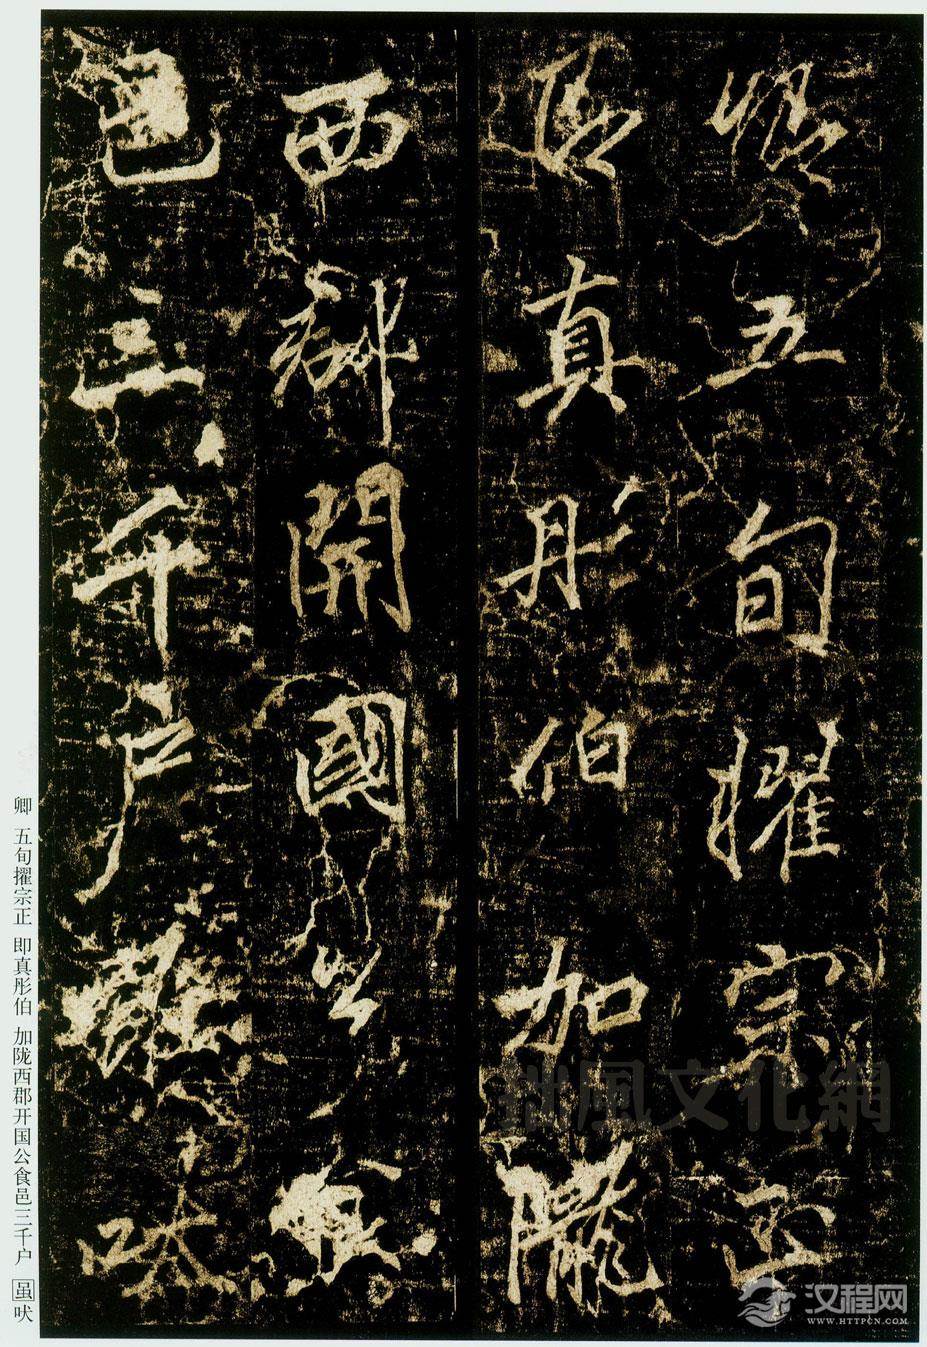 卿五旬擢宗正
即真彤伯加隴
西郡開國公食
邑三千户雖吠
卿 五旬擢宗正 即真彤伯 加陇西郡开国公食邑三千户 虽吠
拙風文化網
汉程网
WWW.HTTPCN.COM